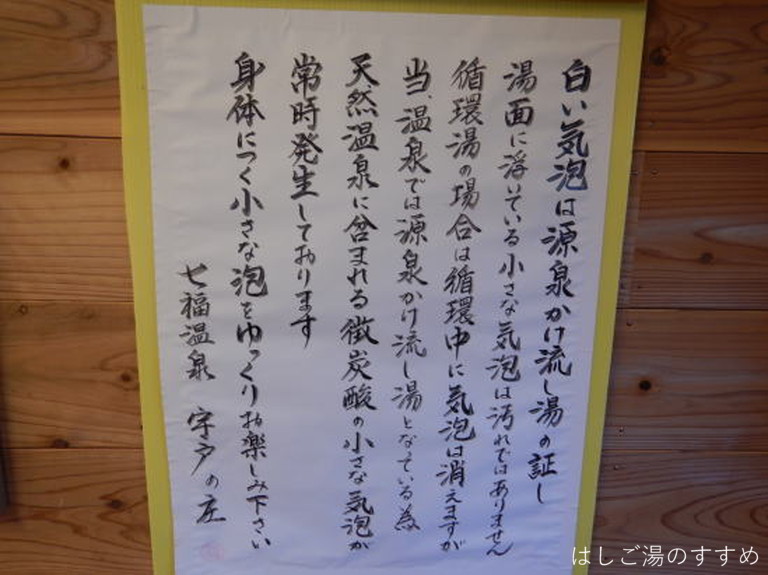 白い気泡は源泉かけ流し湯の証し
湯面に浮いている小さな気泡は汚れではありません
循環湯の場合は循環中に気泡は消えますが
当、温泉では源泉かけ流し湯となっている為
天然温泉に含まれる微炭酸の小さな気泡が
常時発生しております
身体につく小さな泡をゆっくりお楽しみ下さい
七福温泉 宇戸の庄
はしご湯のすすめ